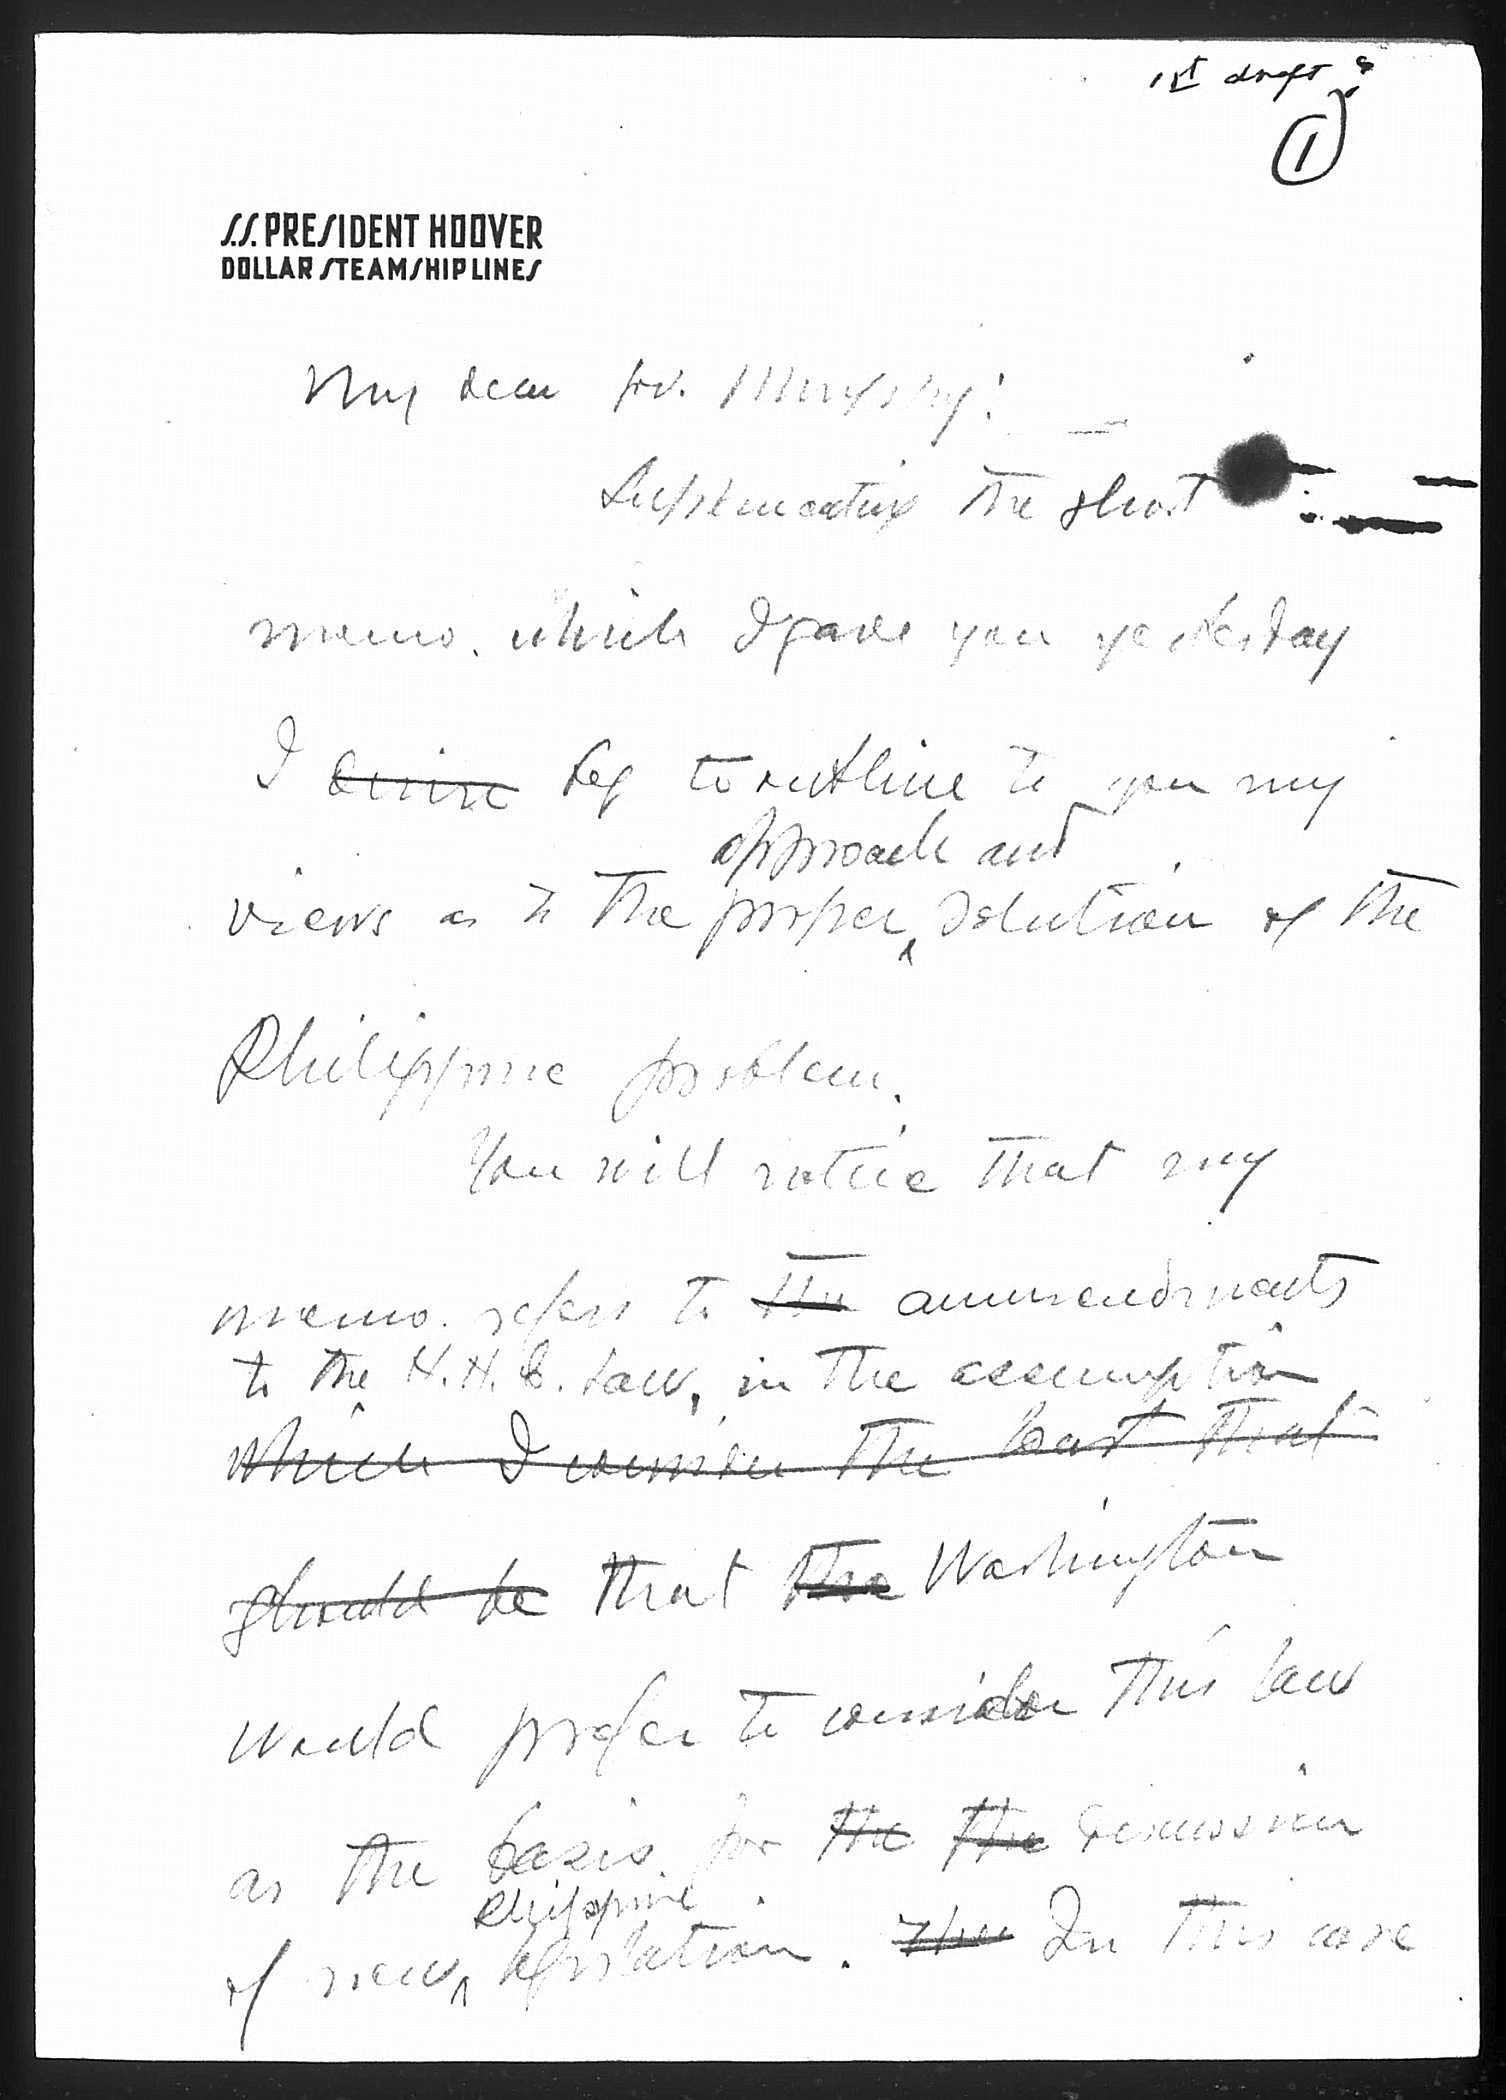 1st draft ?
1
S.S. PRESIDENT HOOVER
DOLLAR STEAMSHIP LINES
My dear Gov. Murphy:
Suplementing the short
memo. which I gave you yesterday
I desire beg to outline to you my
approach and
views as to the proper ^ solution of the
Philippine problem.
You will notice that my
memo. refers to the ammendments
to the H.H.C. Law, in the assumption
which I consider the best that
should be that the Washington
would prefer to consider this law
as the basis for the the discussion
Philippine
of new ^ legislation. The In this case